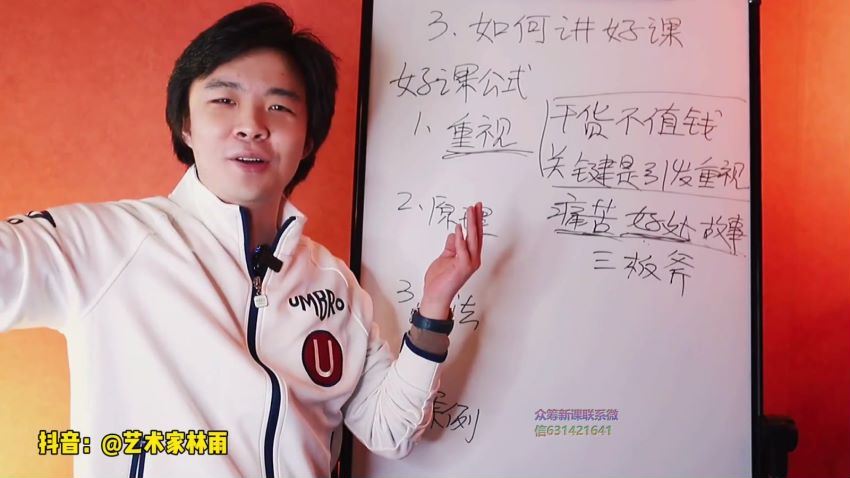 3、如何讲好课
好课公式
1、重视
干货不值钱
关键是引发重视
2、原理
痛苦 好处 故事
三板斧
3、 法
例
UMBRO
U
众筹新课联系微
信631421641
抖音：@艺术家林雨